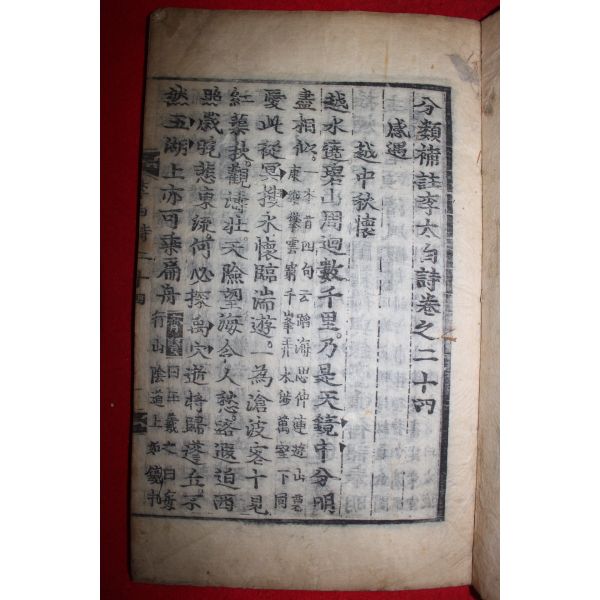 分類補註李太白詩卷之二十四
感遇
越中秋懷
越水遶碧山周迴數千里乃是天鏡中分明
盡相似一本首四句云踏海思仲連遊山慕
康樂攀雲窮千峯弄水涉萬壑下同
愛此從冥搜永懷臨湍遊一為滄波客十見
紅蕖秋觀濤壯天險望海令人愁路遐迫西
照歲晚悲東流何必探禹穴逝將歸蓬丘不
然五湖上亦可乘扁舟齊賢曰王羲之曰每
行山陰道上如鏡中